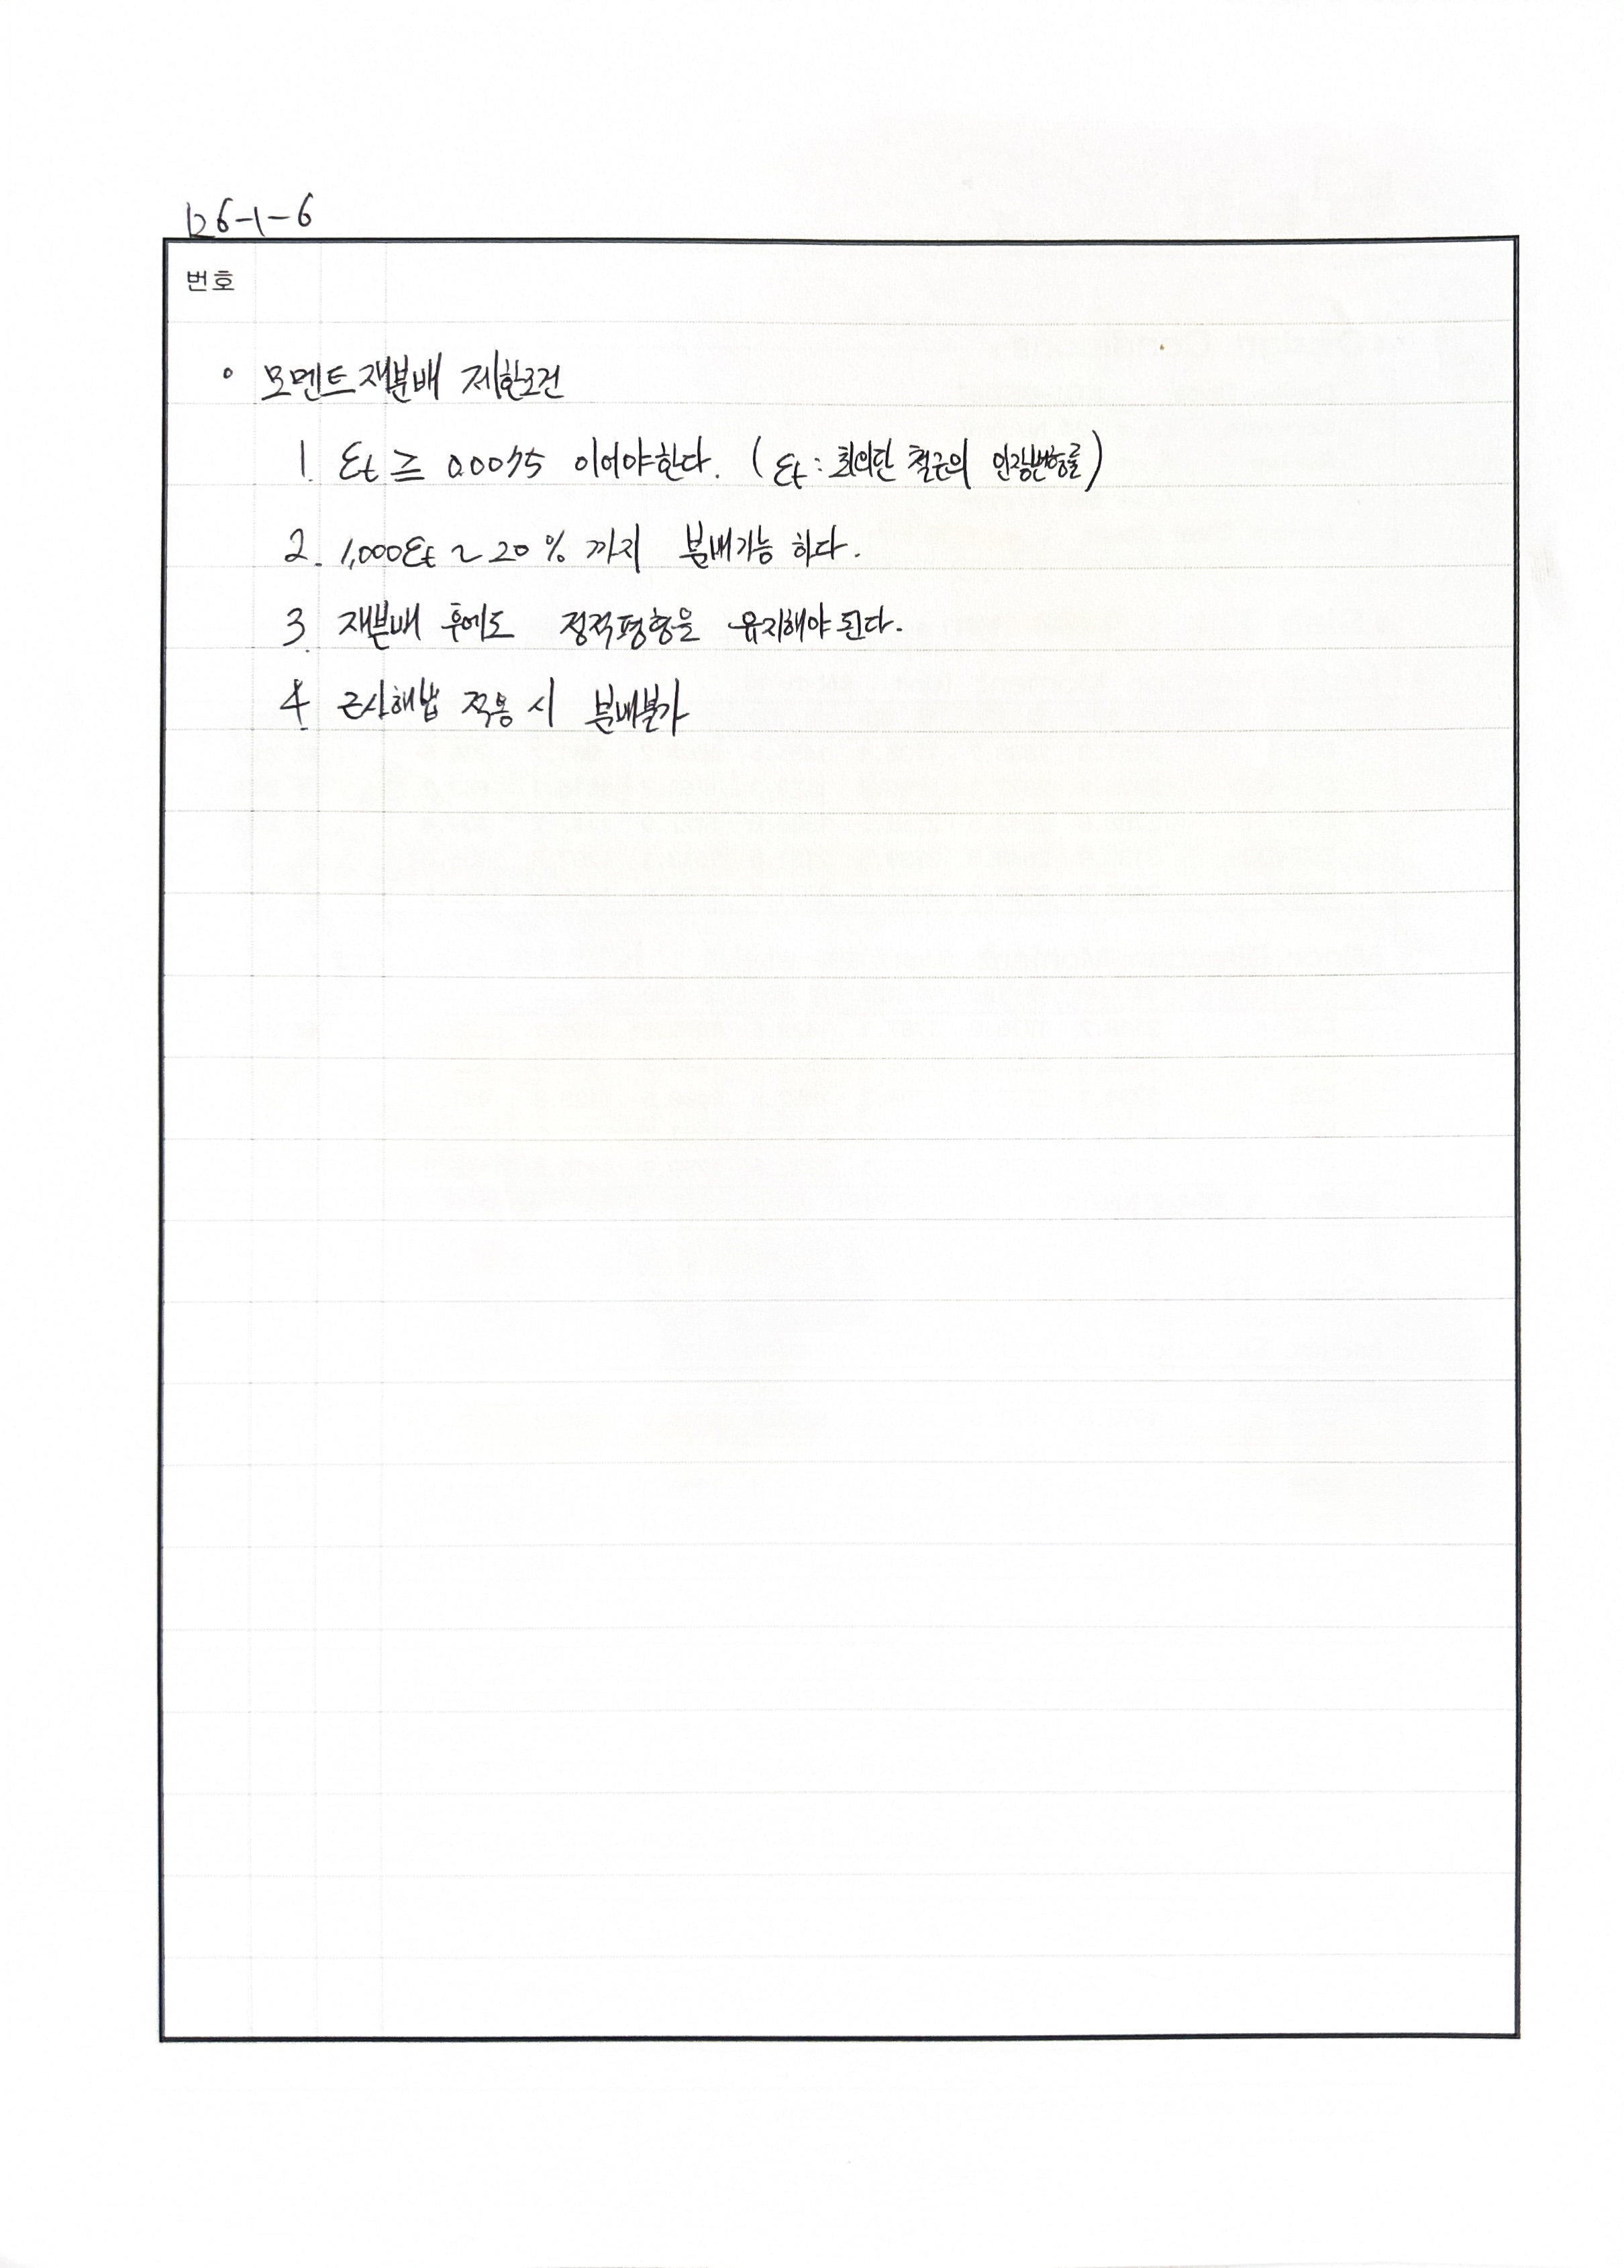 126-1-6
번호
∘ 모멘트재분배 제한조건
1. εt ≥ 0.0075 이어야한다. (εt : 최외단 철근의 인장변형률)
2. 1,000εt ~ 20% 까지 분배가능 하다.
3. 재분배 후에도 정적평형을 유지해야 된다.
4. 근사해법 적용 시 분배불가